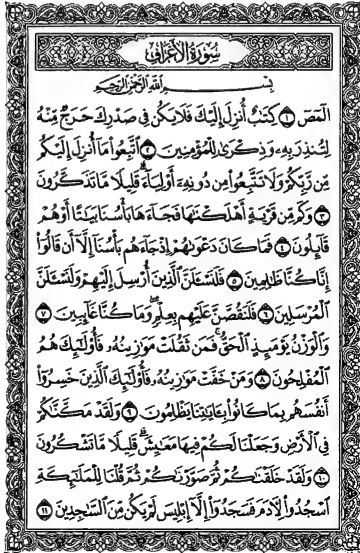 سُورَةُ الأَعْرَافِ
بِسْمِ اللَّهِ الرَّحْمَٰنِ الرَّحِيمِ
الٓمٓصٓ ١ كِتَٰبٌ أُنزِلَ إِلَيْكَ فَلَا يَكُن فِي صَدْرِكَ حَرَجٌ مِّنْهُ
لِتُنذِرَ بِهِۦ وَذِكْرَىٰ لِلْمُؤْمِنِينَ ٢ ٱتَّبِعُوا۟ مَآ أُنزِلَ إِلَيْكُم
مِّن رَّبِّكُمْ وَلَا تَتَّبِعُوا۟ مِن دُونِهِۦٓ أَوْلِيَآءَ ۗ قَلِيلًا مَّا تَذَكَّرُونَ
٣ وَكَم مِّن قَرْيَةٍ أَهْلَكْنَٰهَا فَجَآءَهَا بَأْسُنَا بَيَٰتًا أَوْ هُمْ
قَآئِلُونَ ٤ فَمَا كَانَ دَعْوَىٰهُمْ إِذْ جَآءَهُم بَأْسُنَآ إِلَّآ أَن قَالُوٓا۟
إِنَّا كُنَّا ظَٰلِمِينَ ٥ فَلَنَسْـَٔلَنَّ ٱلَّذِينَ أُرْسِلَ إِلَيْهِمْ وَلَنَسْـَٔلَنَّ
ٱلْمُرْسَلِينَ ٦ فَلَنَقُصَّنَّ عَلَيْهِم بِعِلْمٍ ۖ وَمَا كُنَّا غَآئِبِينَ ٧
وَٱلْوَزْنُ يَوْمَئِذٍ ٱلْحَقُّ ۚ فَمَن ثَقُلَتْ مَوَٰزِينُهُۥ فَأُو۟لَٰٓئِكَ هُمُ
ٱلْمُفْلِحُونَ ٨ وَمَنْ خَفَّتْ مَوَٰزِينُهُۥ فَأُو۟لَٰٓئِكَ ٱلَّذِينَ خَسِرُوٓا۟
أَنفُسَهُم بِمَا كَانُوا۟ بِـَٔايَٰتِنَا يَظْلِمُونَ ٩ وَلَقَدْ مَكَّنَّٰكُمْ
فِي ٱلْأَرْضِ وَجَعَلْنَا لَكُمْ فِيهَا مَعَٰيِشَ ۗ قَلِيلًا مَّا تَشْكُرُونَ
١٠ وَلَقَدْ خَلَقْنَٰكُمْ ثُمَّ صَوَّرْنَٰكُمْ ثُمَّ قُلْنَا لِلْمَلَٰٓئِكَةِ
ٱسْجُدُوا۟ لِـَٔادَمَ فَسَجَدُوٓا۟ إِلَّآ إِبْلِيسَ لَمْ يَكُن مِّنَ ٱلسَّٰجِدِينَ ١١